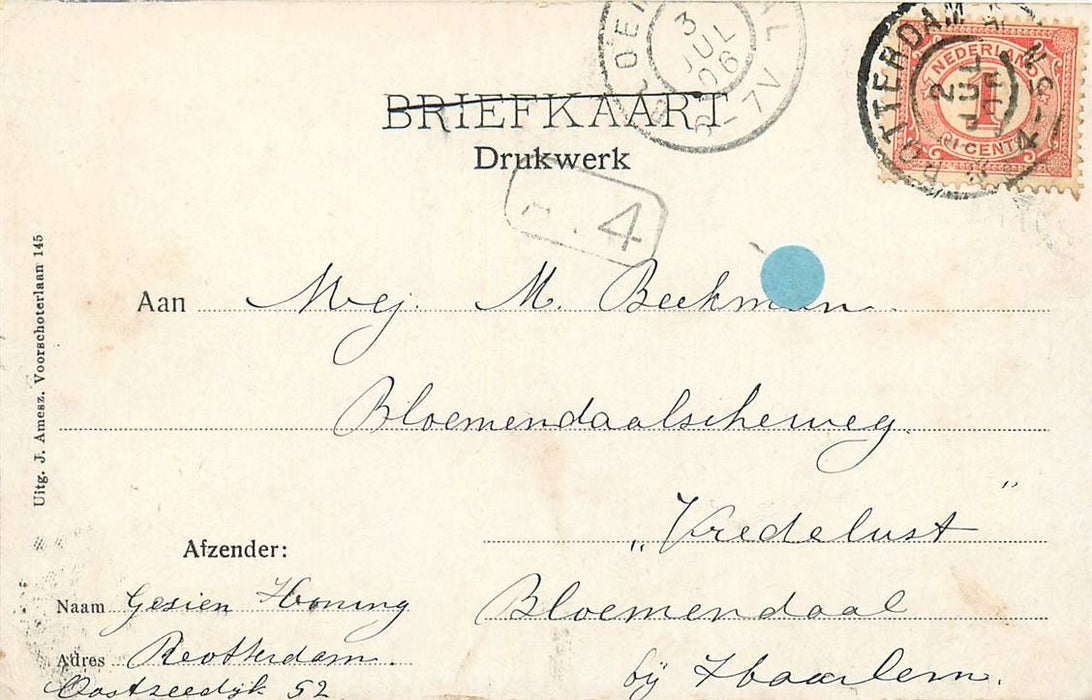 BRIEFKAART
Drukwerk
3
JUL
06
6-7V
ROTTERDAM
2
JUL
NEDERLAND
1
1 CENT
4
Aan Mej. M. Beekman.
Bloemendaalscheweg.
„Vredelust”
Bloemendaal
bij Haarlem.
Afzender:
Naam Gesien Honing
Adres Rotterdam.
Oostzeedijk 52
Uitg. J. Amesz. Voorschoterlaan 145